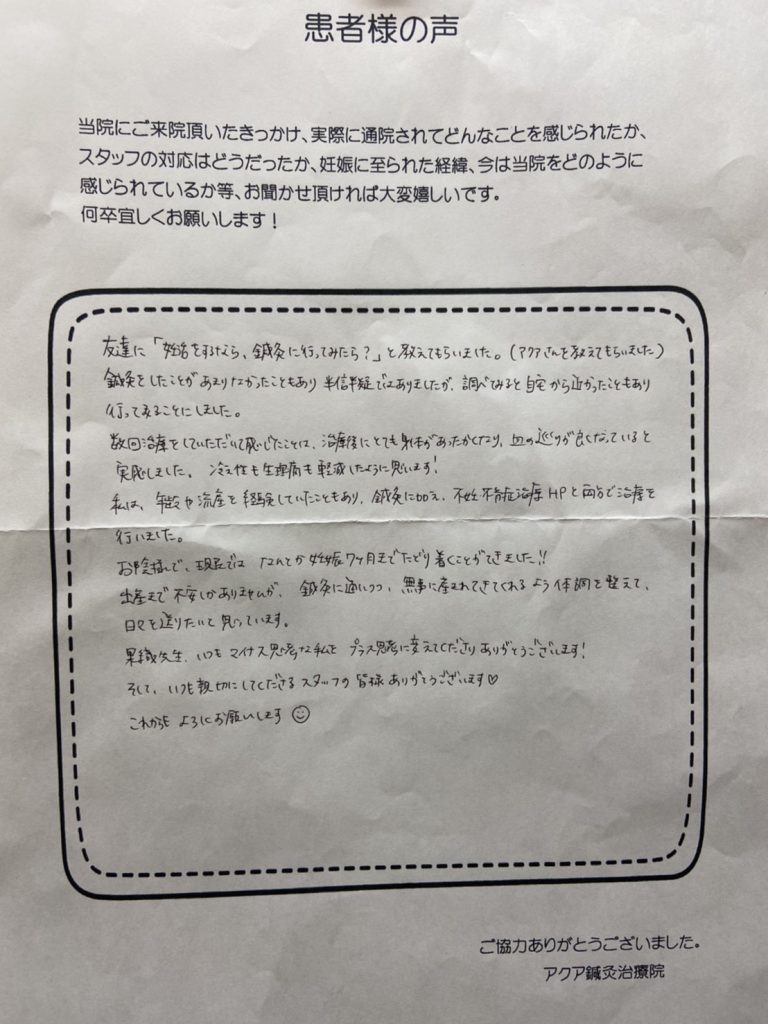 患者様の声
当院にご来院頂いたきっかけ、実際に通院されてどんなことを感じられたか、
スタッフの対応はどうだったか、妊娠に至られた経緯、今は当院をどのように
感じられているか等、お聞かせ頂ければ大変嬉しいです。
何卒宜しくお願いします！
友達に「妊活をするなら、鍼灸に行ってみたら？」と教えてもらいました。（アクアさんを教えてもらいました）
鍼灸をしたことがあまりなかったこともあり半信半疑ではありましたが、調べてみると自宅から近かったこともあり
行ってみることにしました。
数回治療をしていただいて感じたことは、治療後にとても身体があったかくなり、血の巡りが良くなっていると
実感しました。冷え性も生理痛も軽減したように思います！
私は、年齢や流産を経験していたこともあり、鍼灸に加え、不妊不育症治療HPと両方で治療を
行いました。
お陰様で、現在では なんとか妊娠7ヶ月までたどり着くことができました!!
出産まで不安しかありませんが、鍼灸に通いつつ、無事に産まれてきてくれるよう体調を整えて、
日々を送りたいと思っています。
果織先生、いつもマイナス思考な私を プラス思考に変えてくださりありがとうございます！
そして、いつも親切にしてくださるスタッフの皆様ありがとうございます♡
これからも よろしくお願いします ☺
ご協力ありがとうございました。
アクア鍼灸治療院